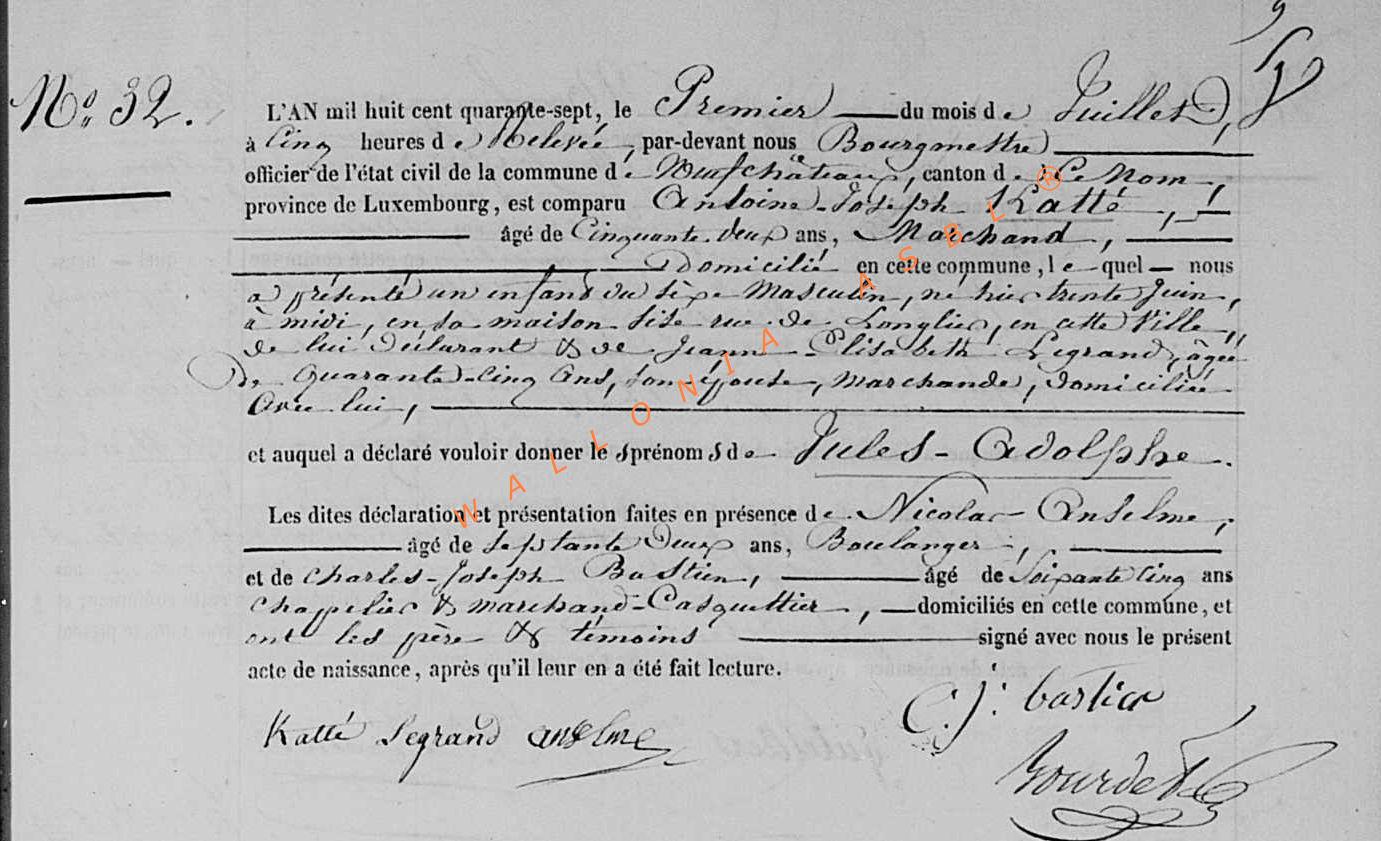 No. 32.
L'AN mil huit cent quarante-sept, le Premier du mois de Juillet,
à Cinq heures de Relevée, par-devant nous Bourgmestre
officier de l'état civil de la commune de Neufchâteau, canton de ce Nom,
province de Luxembourg, est comparu Antoine-Joseph Katté,
âgé de Cinquante-deux ans, Marchand,
Domicilié en cette commune, lequel nous
a présenté un enfant du sèxe Masculin, né hier trente Juin,
à midi, en sa maison sise rue de Longlier, en cette Ville,
de lui Déclarant & de Jeanne-Elisabeth Legrand, âgée
De Quarante-cinq Ans, son épouse, Marchande, Domiciliée
Avec lui,
et auquel a déclaré vouloir donner les prénoms de Jules-Adolphe.
Les dites déclaration et présentation faites en présence de Nicolas Anselme,
âgé de septante Deux ans, Boulanger,
et de Charles-Joseph Bastien, âgé de Soixante Cinq ans
Chappelier & marchand-Casquettier, domiciliés en cette commune, et
ont les père & témoins signé avec nous le présent
acte de naissance, après qu'il leur en a été fait lecture.
Katté Legrand anselme C. J. bastien
Bourdet
WALLONIA ASBL ®